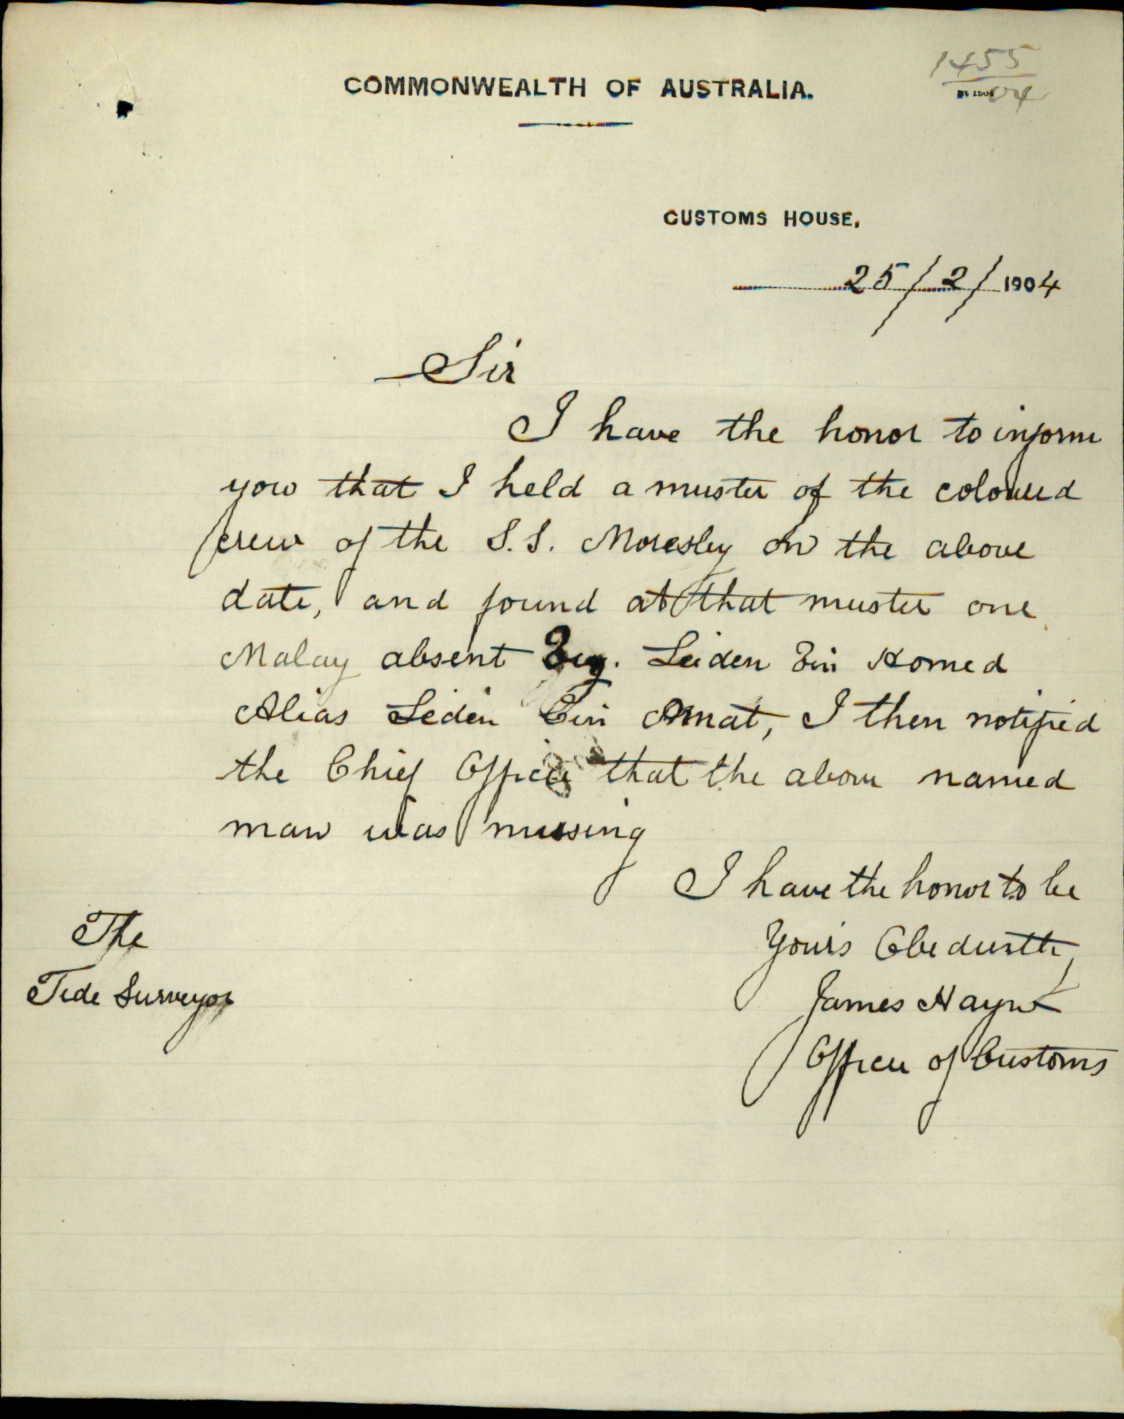 1455
04
COMMONWEALTH OF AUSTRALIA.
CUSTOMS HOUSE,
25/2/1904
Sir
I have the honor to inform
you that I held a muster of the coloured
crew of the S.S. Moresby on the above
date, and found at that muster one
Malay absent Leiden Bin Homed
Alias Seden Bin Amat, I then notified
the Chief Officer that the above named
man was missing
I have the honor to be
Yours Obedientt,
James Hayne
Officer of Customs
The
Tide Surveyor